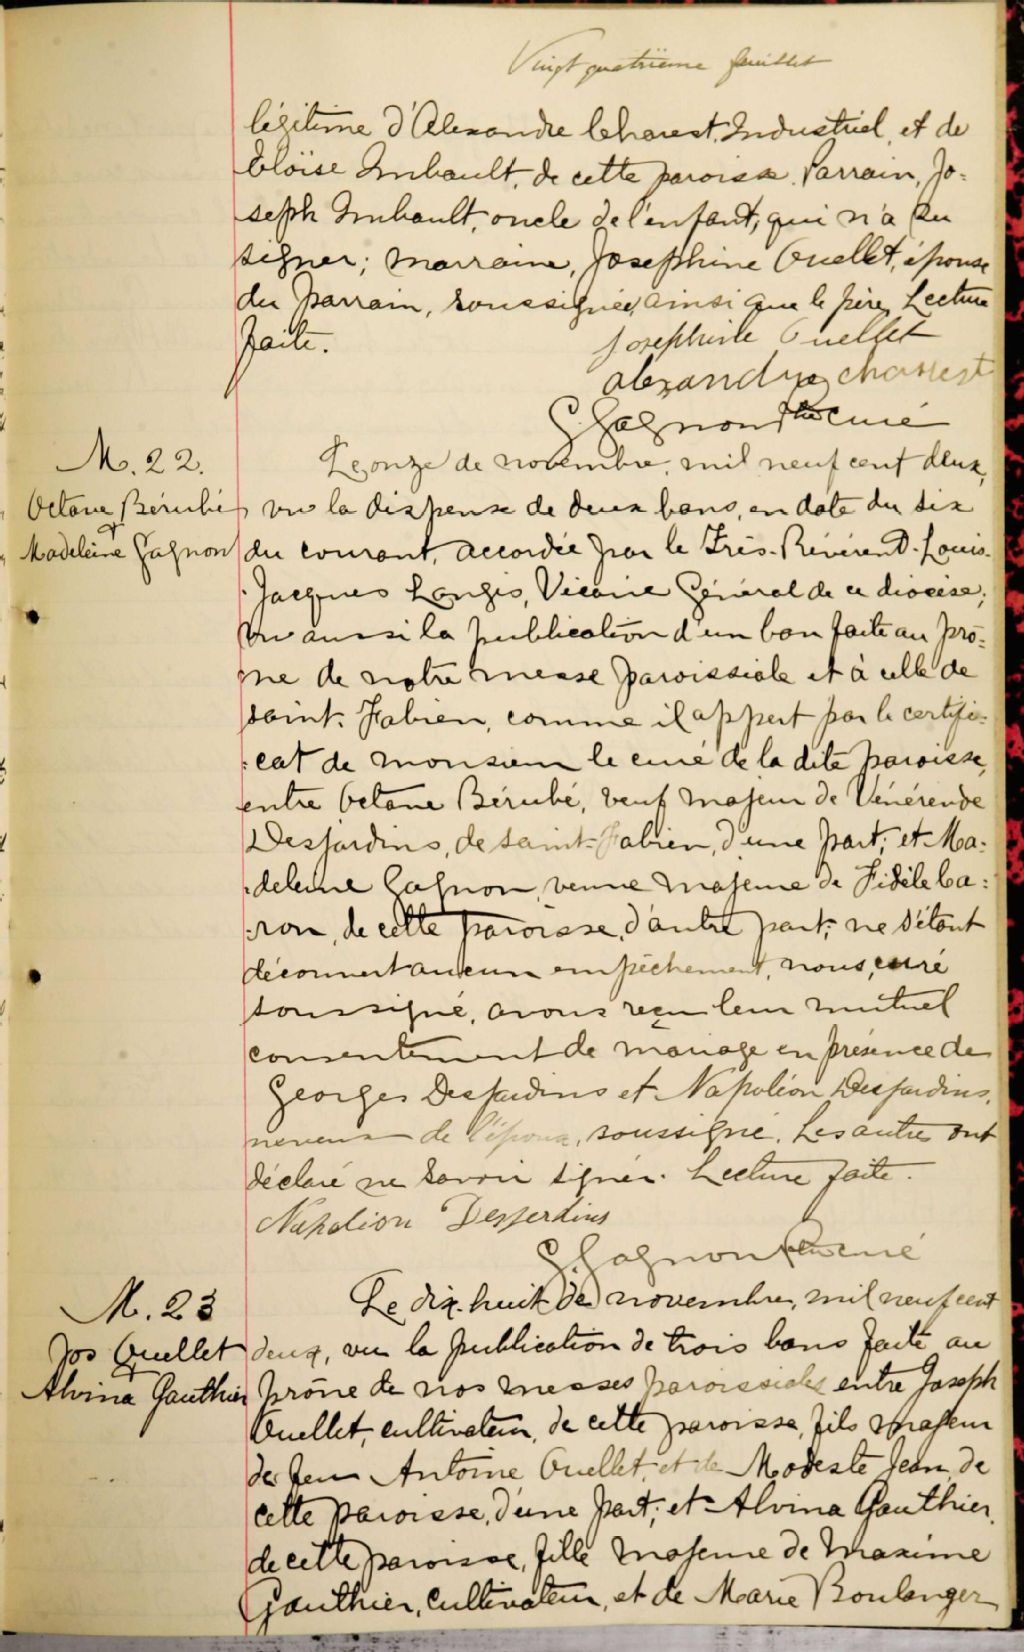 Vingt quatrième feuillet
légitime d'Alexandre Charest, Industriel, et de
Eloïse Imbault, de cette paroisse. Parrain, Jo=
seph Imbault, oncle de l'enfant, qui n'a su
signer; marraine, Josephine Ouellet, épouse
du parrain, soussignée, ainsi que le père. Lecture
faite.
Josephine Ouellet
alexandre charest
G. Gagnon Ptre curé
M. 22.
Octave Bérubé
&
Madeleine Gagnon
Le onze de novembre, mil neuf cent deux,
vu la dispense de deux bans, en date du dix
du courant, accordée par le Très-Révérend-Louis-
Jacques Langis, Vicaire Général de ce diocèse;
vu aussi la publication d'un ban faite au prô=
ne de notre messe paroissiale et à celle de
saint-Fabien, comme il appert par le certifi=
cat de monsieur le curé de la dite paroisse,
entre Octave Bérubé, veuf majeur de Vénérende
Desjardins, de saint-Fabien, d'une part; et Ma=
deleine Gagnon, veuve majeure de Fidèle Ca=
ron, de cette paroisse, d'autre part; ne s'étant
découvert aucun empêchement, nous, curé
soussigné, avons reçu leur mutuel
consentement de mariage en présence de
Georges Desjardins et Napoléon Desjardins,
neveux de l'époux, soussigné. Les autres ont
déclaré ne savoir signer. Lecture faite.
Napoléon Desjerdins
G. Gagnon Ptre curé
M. 23
Jos Ouellet
&
Alvina Gauthier
Le dix-huit de novembre, mil neuf cent
deux, vu la publication de trois bans faite au
prône de nos messes paroissiales entre Joseph
Ouellet, cultivateur, de cette paroisse, fils majeur
de feu Antoine Ouellet, et de Modeste Jean, de
cette paroisse, d'une part; et Alvina Gauthier,
de cette paroisse, fille majeure de Maxime
Gauthier, cultivateur, et de Marie Boulanger